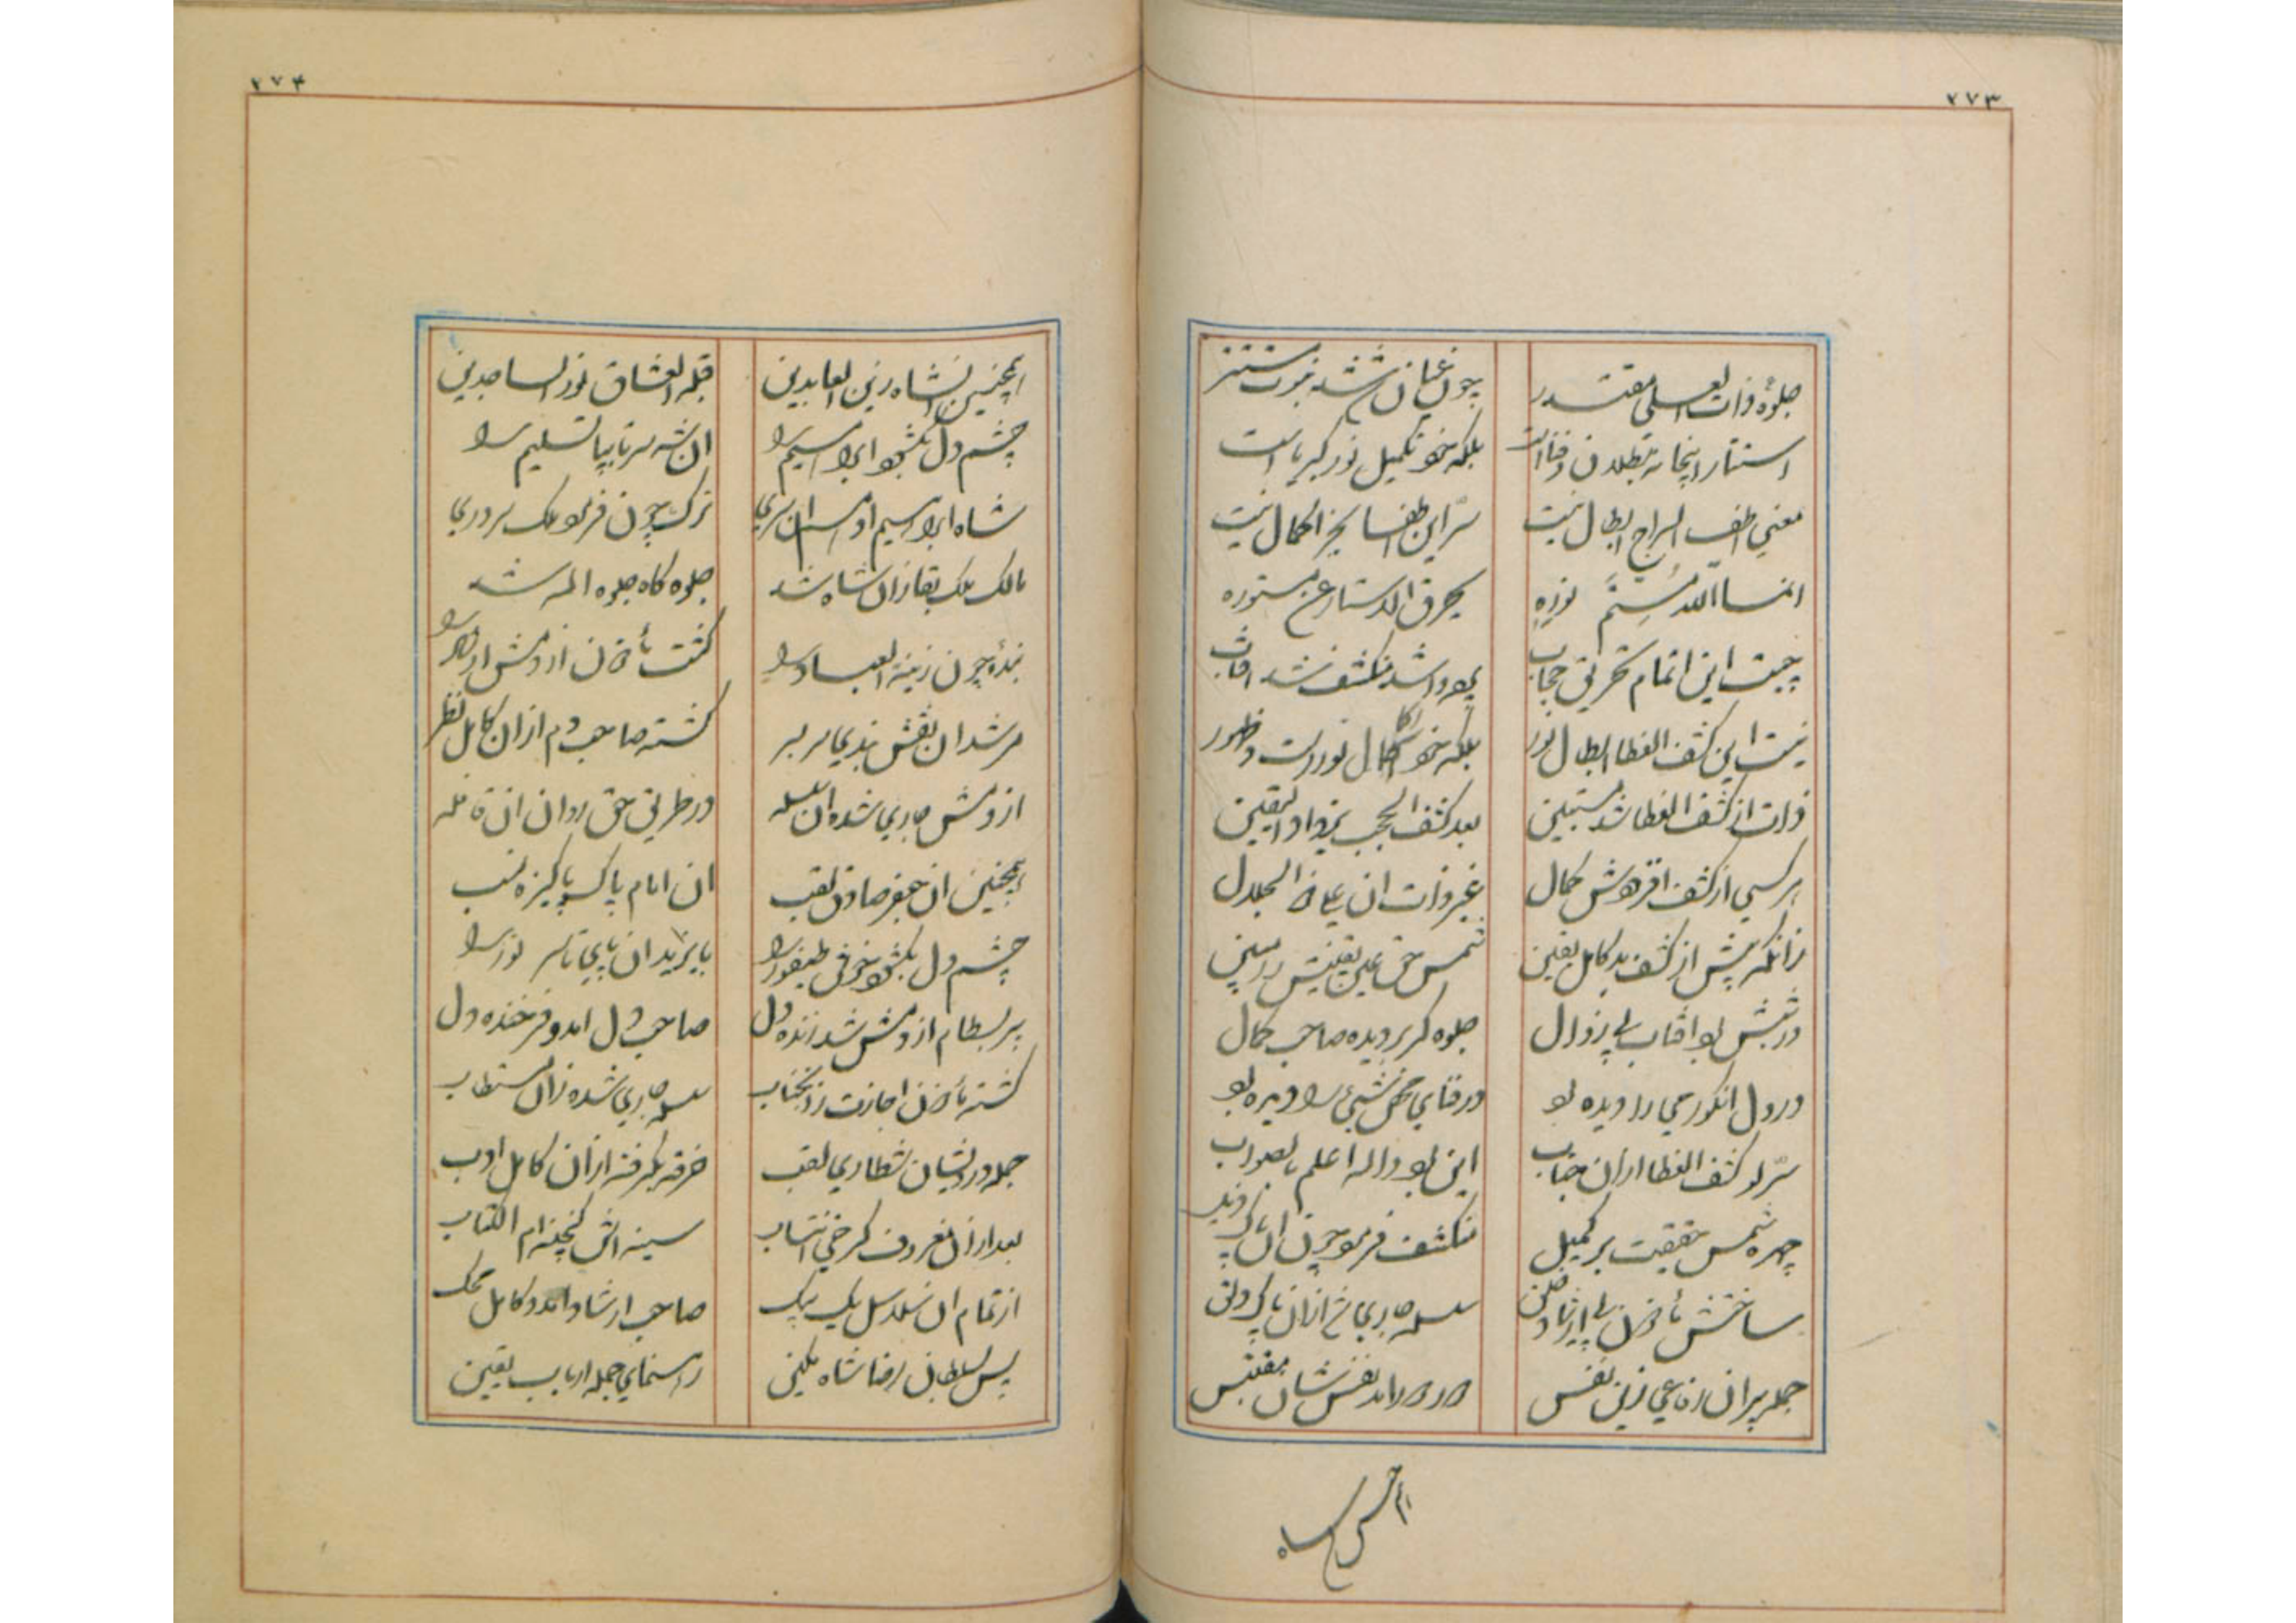 ۲۷۳
جلوهٔ ذات العلی مقتدر چون عیان شد شد نبوت مستتر
استتار اینجا نه بطلان و فناست بلکه محو تکمیل نور کبریاست
معنی اطف السراج ابطال نیست سرّ این اطفا بجز اکمال نیست
انما الله مُتِمّ نورِهِ یحرق الاستار عن مستوره
چیست این اتمام تحریق حجاب پرده وا شد منکشف شد افتاب
نیست این کشف الغطا ابطال نور بلکه محو اکمال نورست و ظهور
ذات از کشف الغطا شد مستبین بعد کشف الحجب یزداد الیقین
هر کسی از کشف افزودش کمال غیر ذات ان علی ذی الجلال
زانکه پیش از کشف بد کامل یقین شمس حق عین یقینش در مبین
در شبش بود افتاب بی زوال جلوه گر بر دیده صاحب کمال
در دل انگور می را دیده بود در فنای محض شیئی را دیده بود
سرّ لو کشف الغطا از ان جناب این بود والله اعلم بالصواب
چهره شمس حقیقت بر کمیل منکشف فرمود چون ان پاک
ساختش مأذون پی ارشاد خلق سلسله جاری شد از ان پاک دلق
جمله پیران زین نفس نفس شان مقتبس
همچنین شاه
۲۷۴
همچنین انشاه زین العابدین قبله العشاق نور الساجدین
چشم دل بگشود ابراهیم را ان شه سر تا بپا تسلیم را
شاه ابراهیم ادهم ان سری ترک چون فرمود ملک سروری
مالک ملک بقا زان شاه شد جلوه گاه جلوه الله شد
بندهٔ چون زینة العباد را گشت مأذون از دمش ارشاد را
مرشدان نقش بندی سر بسر گشته صاحب دم از ان کامل نظر
از دمش جاری شده ان سلسله در طریق حق روان ان قافله
همچنین ان جعفر صادق لقب ان امام پاک پاکیزه نسب
چشم دل بگشود طیفور را بایزید ان پای تا سر نور را
پیر بسطام از دمش شد زنده دل صاحب دل امد و فرخنده دل
گشته مأذون اجازت زانجناب سلسله جاری شده زان مستطاب
جمله درویشان شطاری لقب خرقه بگرفته از ان کامل ادب
بعد از ان معروف کرخی انتساب سینه اش گنجینه ام الکتاب
از تمام ان سلاسل یک بیک صاحب ارشاد امد و کامل محک
پس سلطان رضا شاه مکین رهنمای جمله ارباب یقین